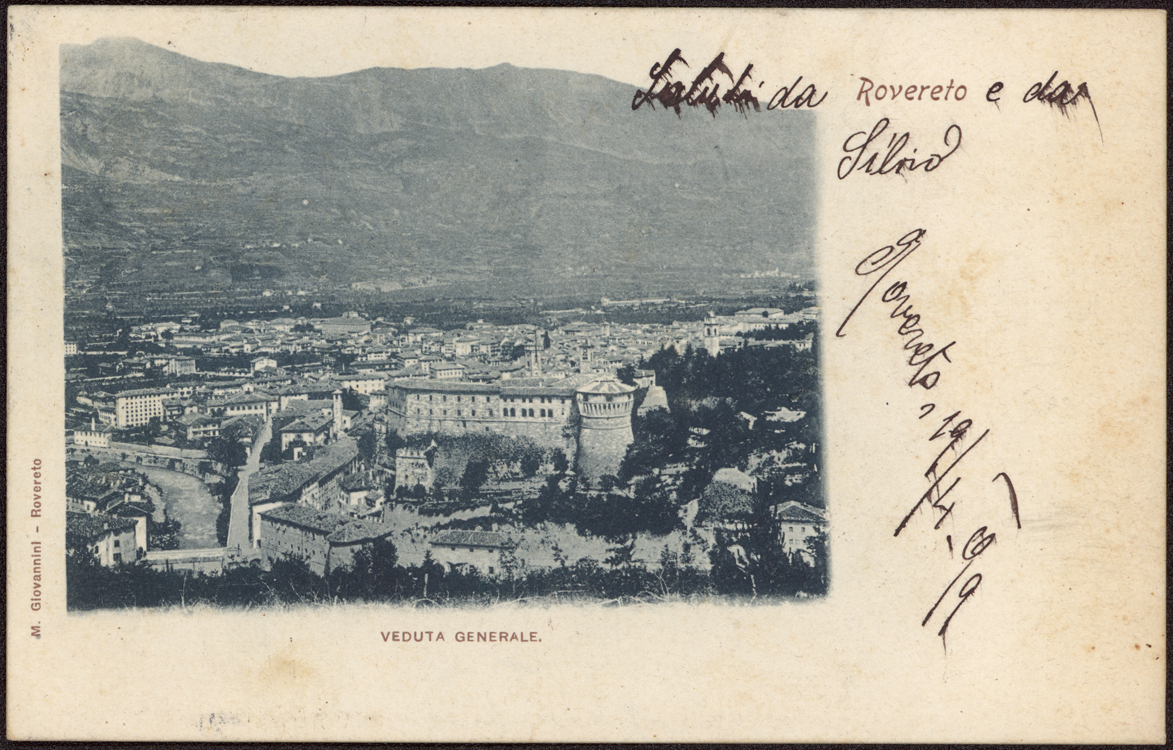 Saluti da Rovereto e da
Silvio
Rovereto, 19/4-99
VEDUTA GENERALE.
M. Giovannini - Rovereto